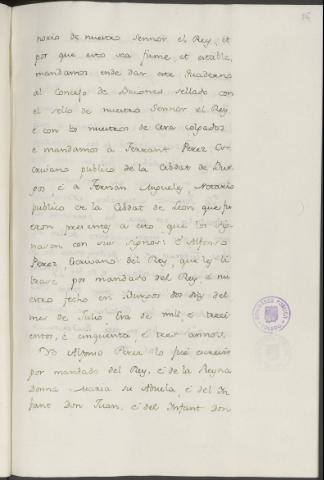 noria de nuestro Sennor el Rey, et
por que esto sea firme, et estable,
mandamos ende dar este Quaderno
al Concejo de Briones, sellado con
el sello de nuestro Sennor el Rey,
é con los nuestros de cera colgados
é mandamos a Ferrant Perez Es-
crivano publico de la Cibdat de Bur-
gos, é a Fernan Miguelez, Notario
publico de la Cibdat de Leon que fu-
eron presentes a esto, que los sig-
nasen con sus signos: é Alfonso
Perez, Escrivano del Rey, que los li-
brase, por mandado del Rey é nu-
estro fecho en Burgos dos dias del
mes de Julio Era de mill é treci-
entos, é cinquenta, é tres annos.
Yo Alfonso Perez lo fiz escrivir
por mandado del Rey, é de la Reyna
Donna Maria su Abuela, é del In-
fant Don Juan, é del Infant Don